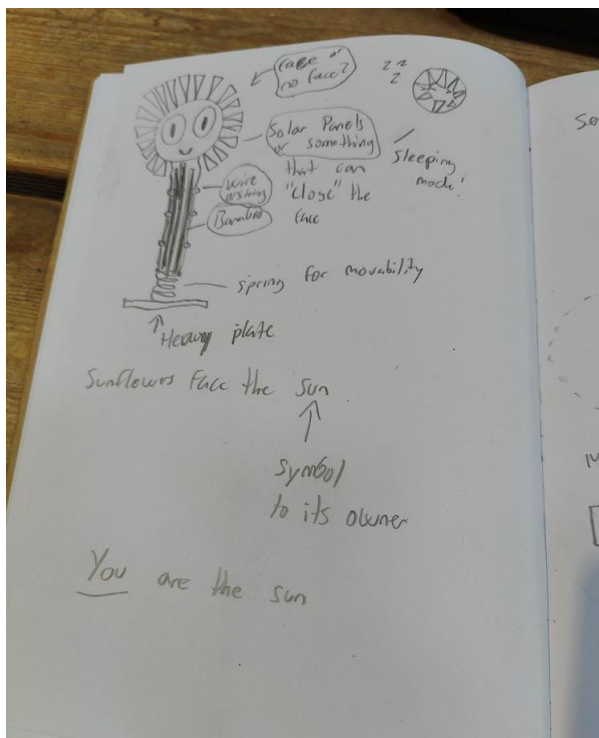 face or
no face?
z z
z
Solar Panels
or something
that can
"close" the
face
Sleeping
mode!
wire
string
Bamboo
spring for movability
Heavy plate
Sunflowers Face the sun
symbol
to its owner
You are the sun
Se